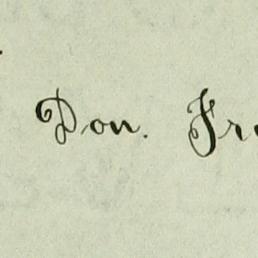 Don. Fr